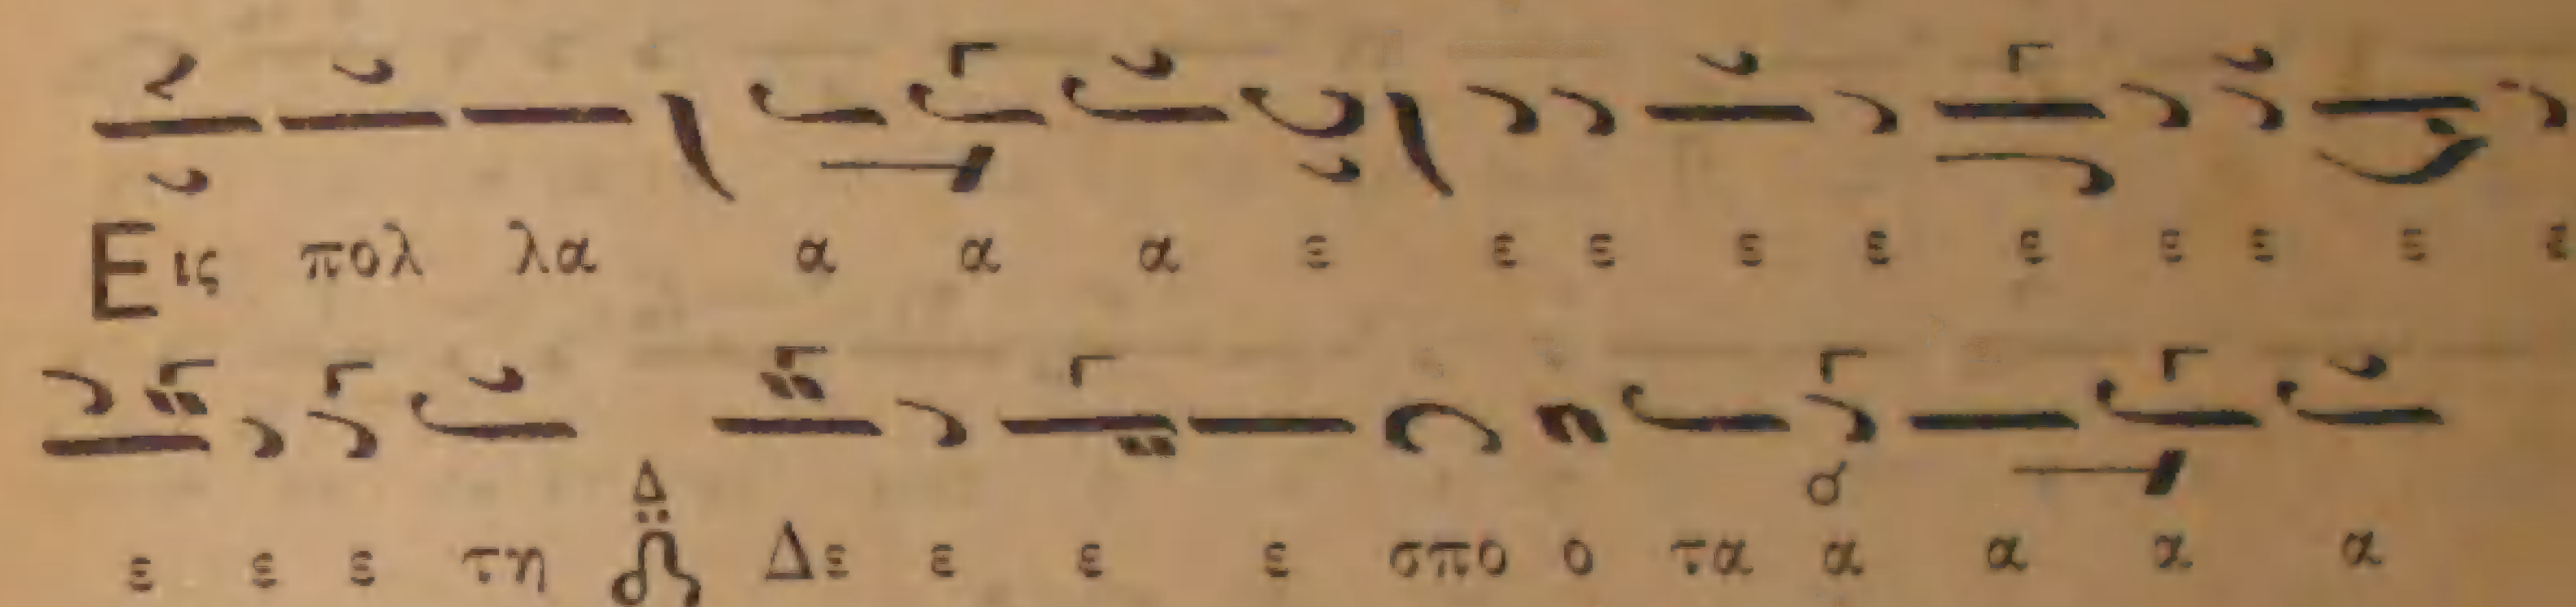 Εις πολ λα α α α ε ε ε ε ε ε ε ε ε ε
Δ
ε ε ε τη Δε ε ε ε σπο ο τα α α α α